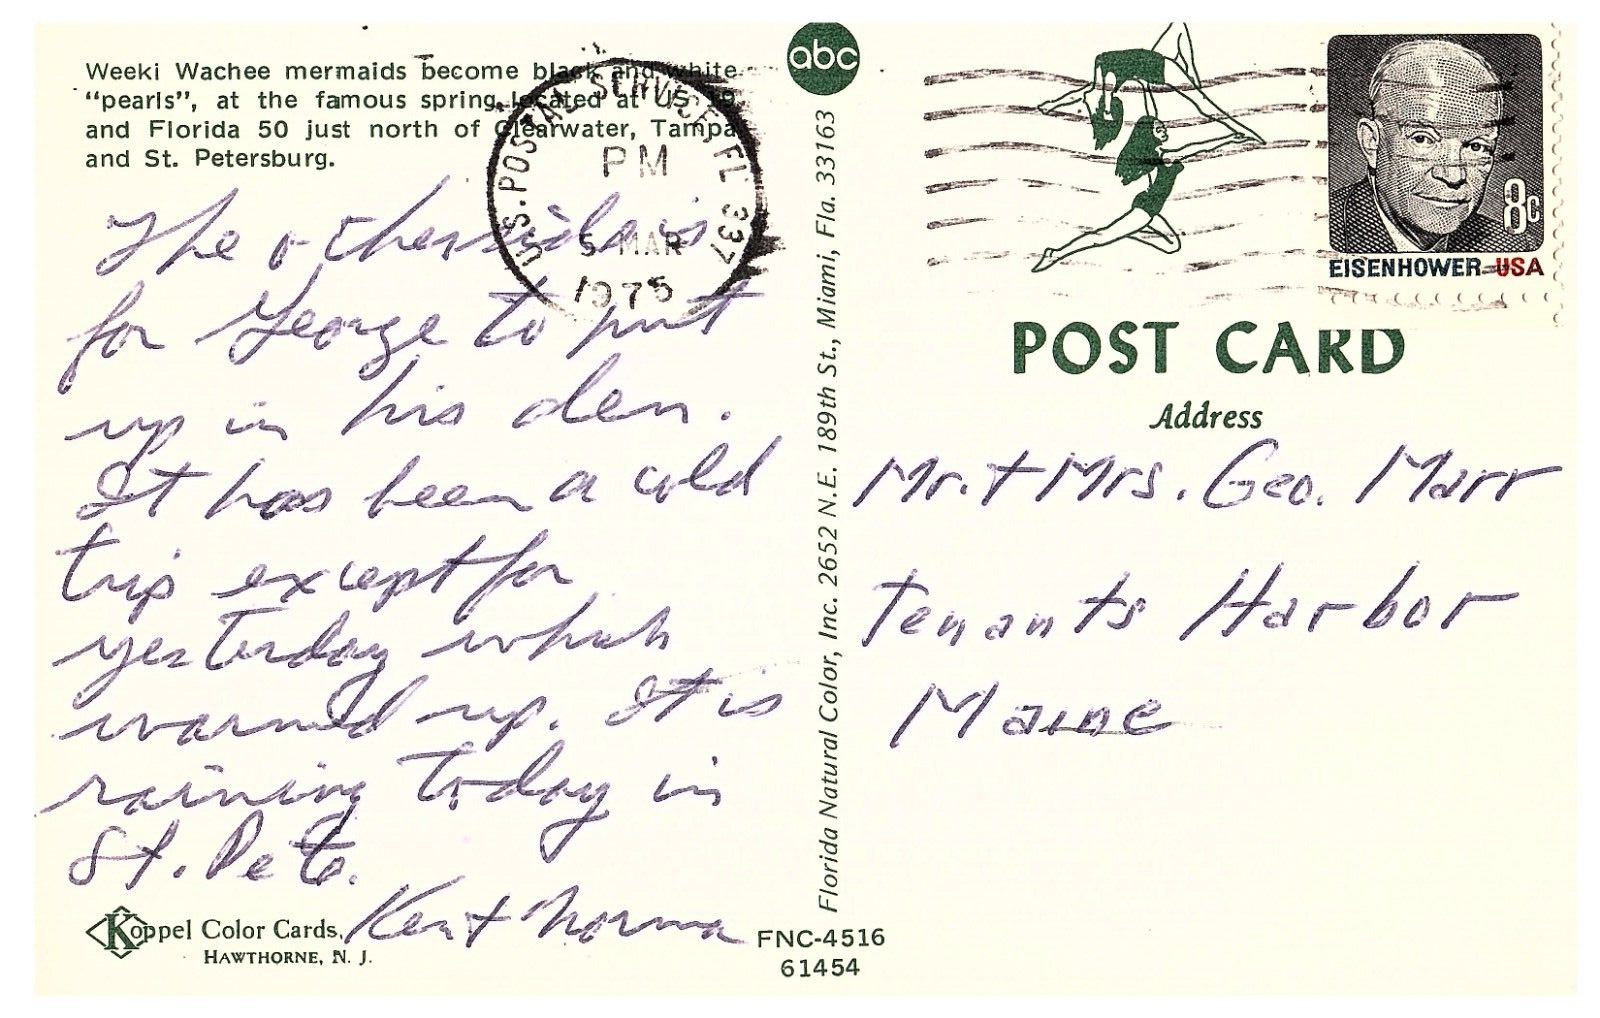 Weeki Wachee mermaids become black and white
"pearls", at the famous spring located at US 19
and Florida 50 just north of Clearwater, Tampa
and St. Petersburg.
U.S. POSTAL SERVICE, FL 337
PM
5 MAR
1975
The other side is
for George to put
up in his den.
It has been a cold
trip except for
yesterday which
warmed up. It is
raining today in
St. Pete.
Ken + Norma
Koppel Color Cards,
HAWTHORNE, N. J.
abc
Florida Natural Color, Inc. 2652 N.E. 189th St., Miami, Fla. 33163
FNC-4516
61454
8c
EISENHOWER USA
POST CARD
Address
Mr. + Mrs. Geo. Marr
Tenants Harbor
Maine